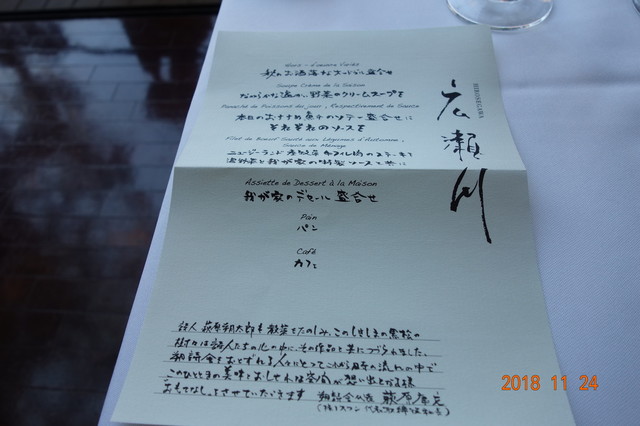 広瀬川
HIROSEGAWA
Hors - d'œuvre Variés
秋のお洒落なオードブル盛合せ
Soupe Crème de la Saison
なめらかな温かい野菜のクリームスープを
Panaché de Poissons du jour, Respectivement de Sauce
本日のおすすめ魚介のソテー盛合せに
それぞれのソースを
Filet de Bœuf Sauté aux Légumes d'Automne,
Sauce de Ménage
ニュージーランド産牧草牛フィレ肉のステーキ
我が家の特製ソースと共に
Assiette de Dessert à la Maison
我が家のデセール盛合せ
Pain
パン
Café
カフェ
詩人 萩原朔太郎も散策をたのしみ、このしきしまの黒松の
樹々は詩人たちの心の中に、その作品と共につづられました。
朔詩舎をおとずれる人々にとって
このひとときの美味と
おもてなしをさせていただきます
2018 11 24